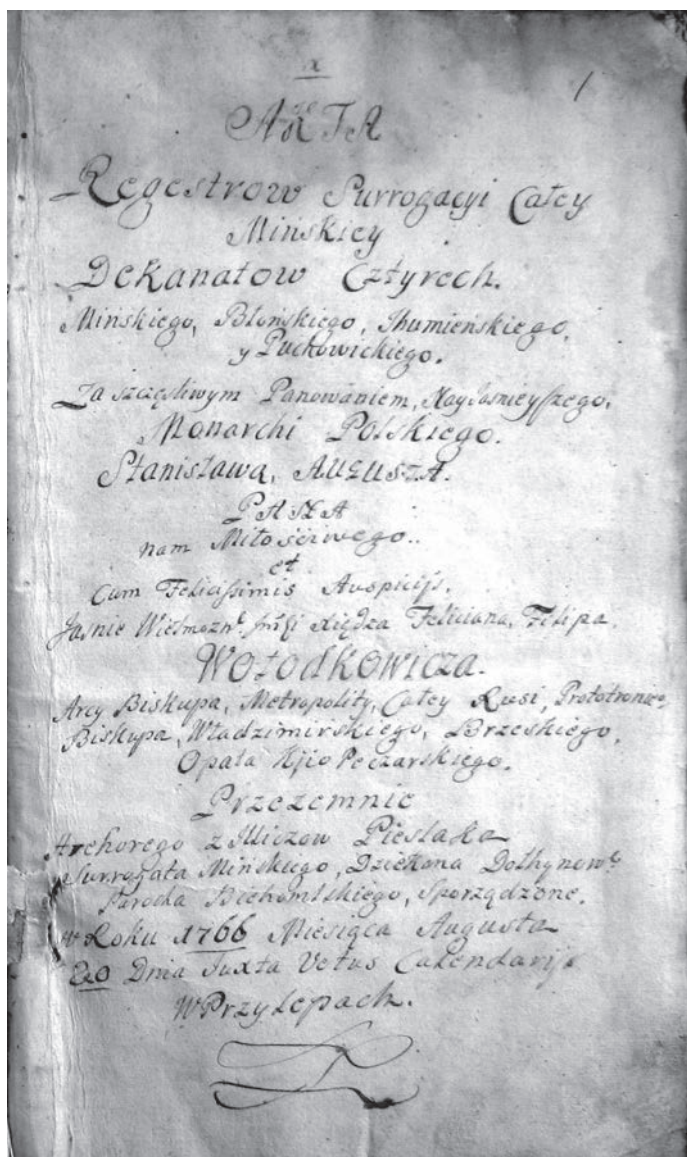 x
1
AKTA
Regestrow Surrogacyi Całey
Mińskiey
Dekanatow Cztyrech.
Mińskiego, Błońskiego, Jhumieńskiego,
y Puchowickiego.
Za szczęsliwym Panowaniem, Nayjasnieyszego,
Monarchi Polskiego.
Stanisława, AUGUSTA.
PANA
nam Miłościwego..
et
Cum Felicissimis Auspicijs.
Jasnie Wielmożnᵒ Xiędza Feliciana, Filipa,
Wołodkowicza.
Arcy Biskupa, Metropolity, Całey Rusi, Prototronieᵒ
Biskupa, Władzimirskiego, Brzeskiego,
Opata Kijio Peczarskiego.
Przezemnie
Arehorego z Iliczow Pieslaka
Surrogata Mińskiego, Dziekana Dołhynowᵒ
Parocha Biehomlskiego, Sporządzone.
w Roku 1766 Miesiąca Augusta
20 Dnia Juxta Vetus Calendarij
W Przylepach.